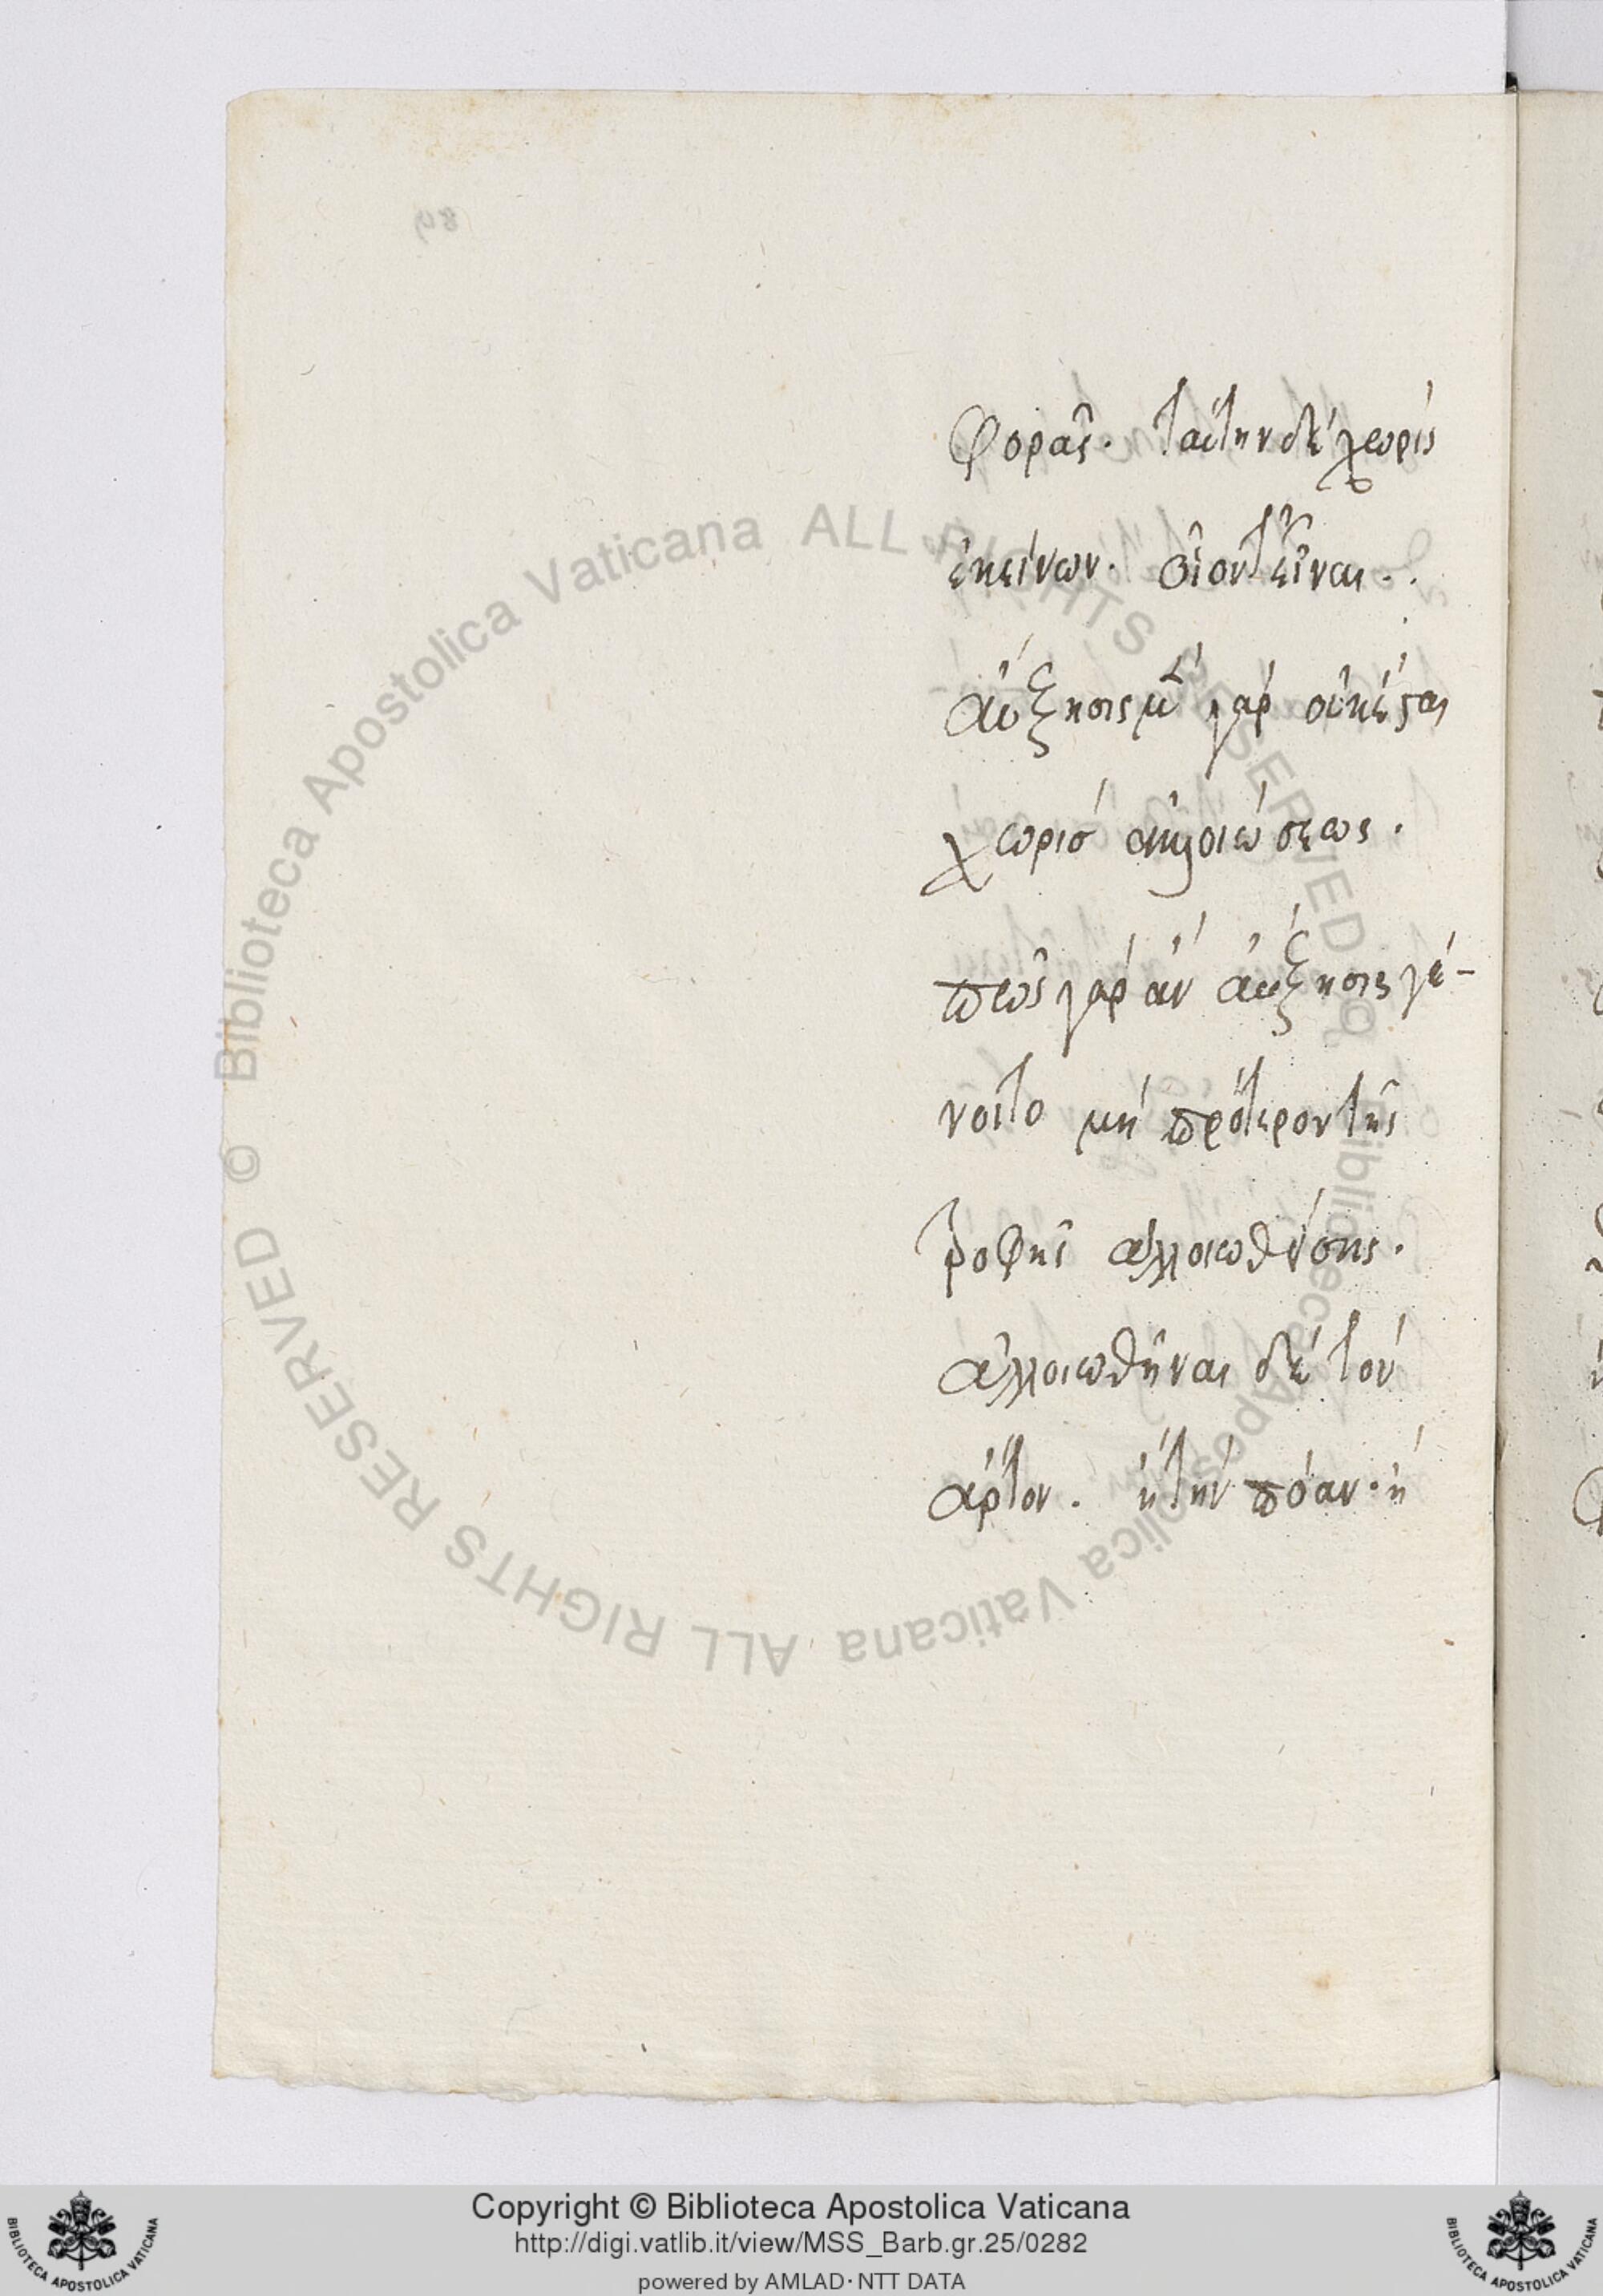 φορᾶς. ταύτην δὲ χωρὶς
ἐκείνων. οἷόντ εἶναι..
αὔξησις μὲν γὰρ οὐκ ἔσται
χωρισ ἀλλοιώσεως.
πῶς γὰρ ἂν αὔξησις γέ-
νοιτο μὴ πρότερον τῆς
τροφῆς ἀλλοιωθείσης.
ἀλλοιωθῆναι δὲ τὸν
ἄρτον. ἢ τὴν πόαν. ἢ
89
© Biblioteca Apostolica Vaticana ALL RIGHTS RESERVED © Biblioteca Apostolica Vaticana ALL RIGHTS RESERVED
Copyright © Biblioteca Apostolica Vaticana
http://digi.vatlib.it/view/MSS_Barb.gr.25/0282
powered by AMLAD·NTT DATA
BIBLIOTECA APOSTOLICA VATICANA
BIBLIOTECA APOSTOLICA VATICANA